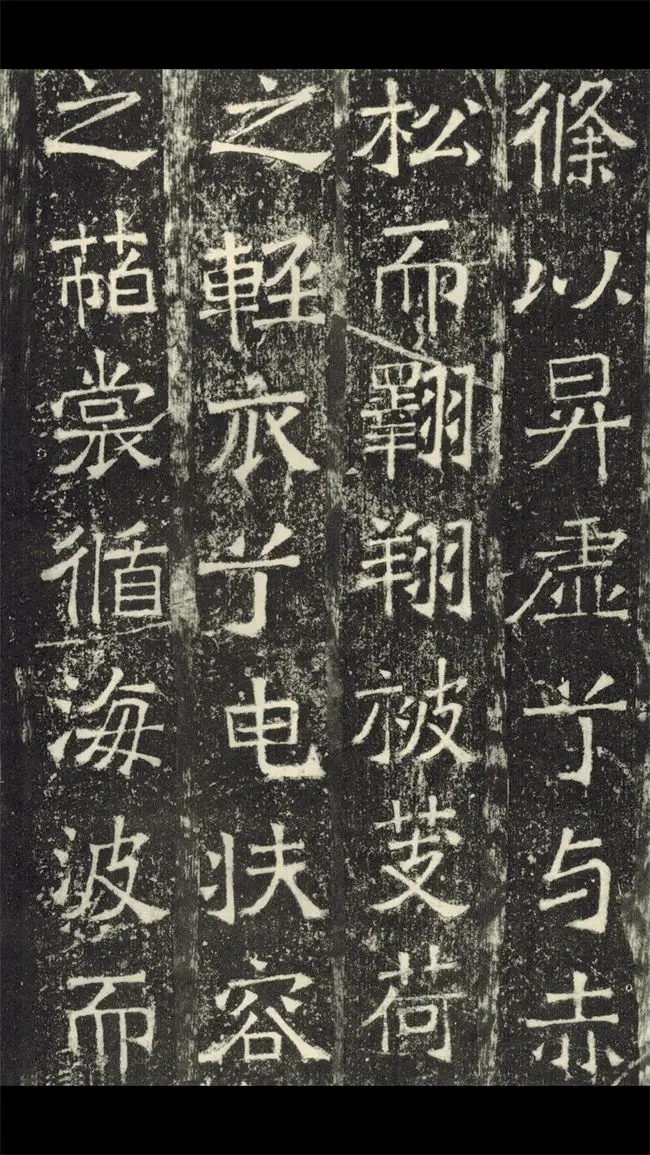 條以昇虛兮与赤
松而翱翔被芰荷
之輕衣兮曳扶容
之葩裳循海波而